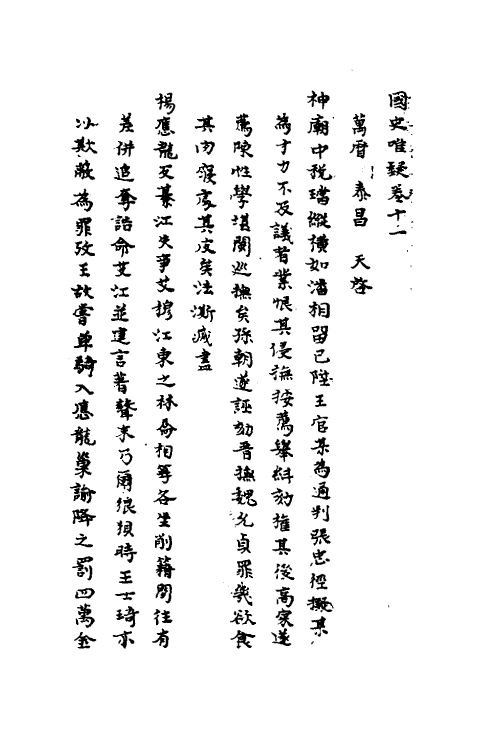 國史唯疑卷十一
萬曆 泰昌 天啓
神廟中稅璫縱橫如潘相留已陞王官某為通判張忠徑擬某
為才力不及議者業恨其侵撫按薦舉糾劾權其後高寀遂
薦陳性學堪閩巡撫矣孫朝遂誣劾晋撫魏允貞罪幾欲食
其肉寢處其皮矣法澌滅盡
楊應龍反綦江失事艾穆江東之林喬相等各坐削籍閒住有
差併追奪誥命艾江並建言著聲末乃爾狼狽時王士琦亦
以欺蔽為罪攷王故嘗單騎入應龍巢諭降之罰四萬金